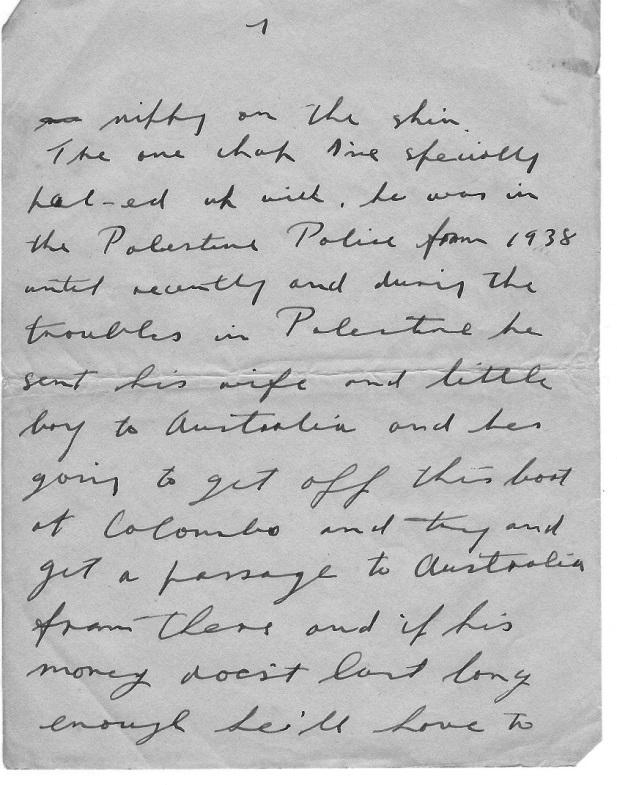 7
niffy on the skin.
The one chap I've specially
pal-ed up with, he was in
the Palestine Police from 1938
until recently and during the
troubles in Palestine he
sent his wife and little
boy to Australia and hes
going to get off this boat
at Colombo and try and
get a passage to Australia
from there and if his
money doesn't last long
enough he'll have to